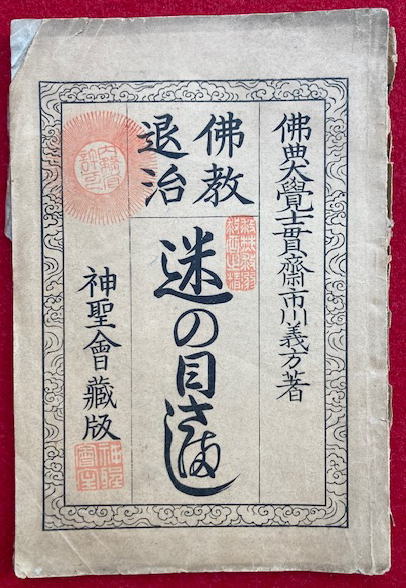 佛典大覺士貫齋市川義方著
佛教
退治
迷の目さまし
神聖會藏版
內務省
許可